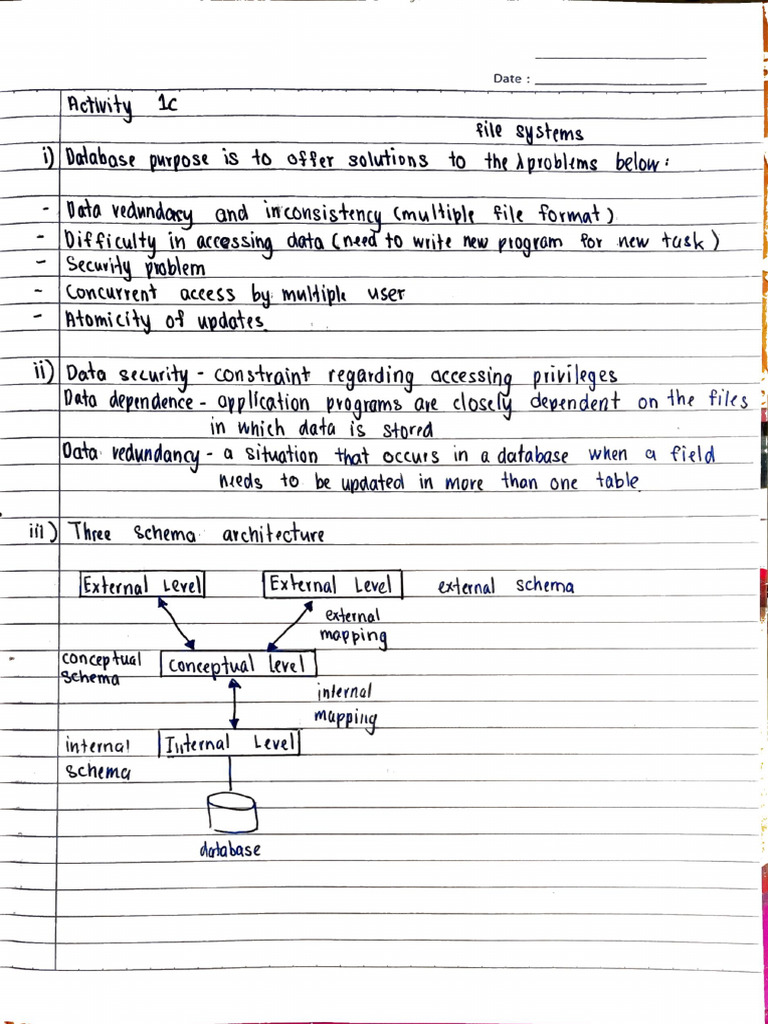 Date :
Activity 1c
file systems
i) Database purpose is to offer solutions to the λ problems below :
- Data redundacy and inconsistency (multiple file format)
- Difficulty in accessing data (need to write new program for new task)
- Security problem
- Concurrent access by multiple user
- Atomicity of updates
ii) Data security - constraint regarding accessing privileges
Data dependence - application programs are closely dependent on the files
in which data is stored
Data redundancy - a situation that occurs in a database when a field
needs to be updated in more than one table
iii) Three schema architecture
External Level External Level external schema
external
mapping
conceptual
schema
Conceptual Level
internal
mapping
internal
schema
Internal Level
database